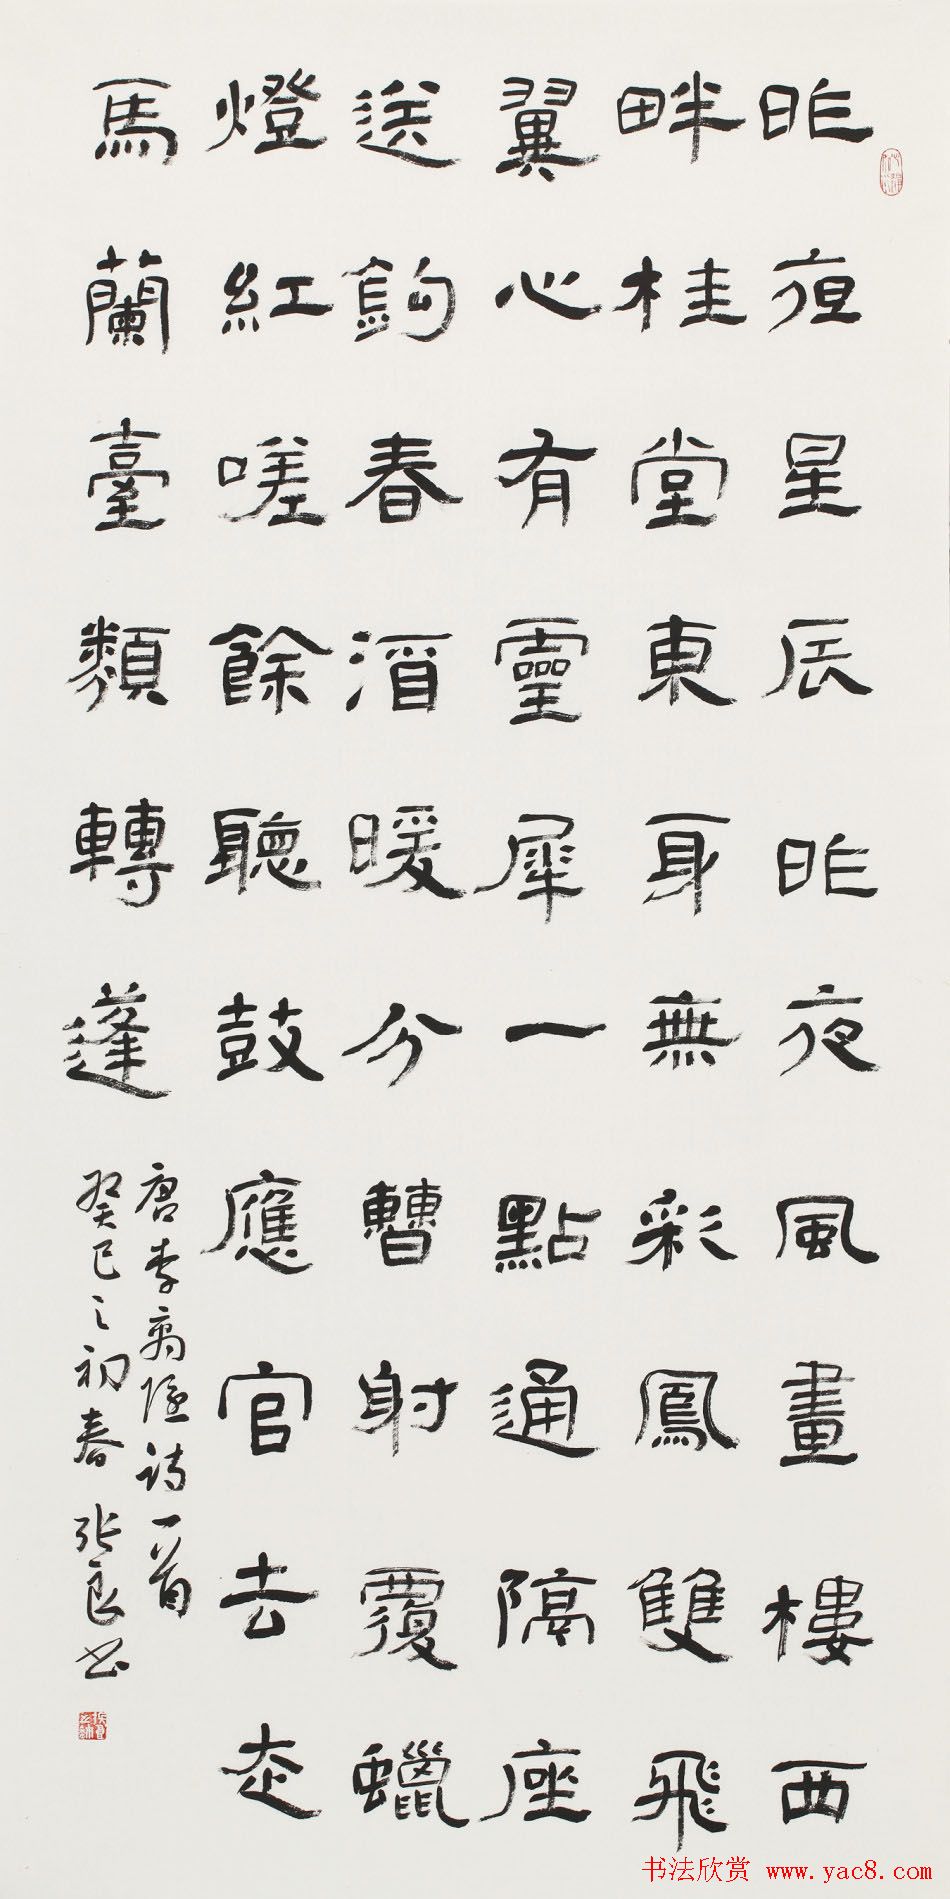 昨夜星辰昨夜風畫樓西
畔桂堂東身無彩鳳雙飛
翼心有靈犀一點通隔座
送鉤春酒暖分曹射覆蠟
燈紅嗟餘聽鼓應官去走
馬蘭臺類轉蓬
唐李商隱诗一首
癸巳之初春 张良书
书法欣赏 www.yac8.com